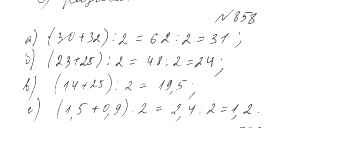 № 858
а) (30+32) : 2 = 62 : 2 = 31 ;
б) (23+25) : 2 = 48 : 2 = 24 ;
в) (14+25) : 2 = 19,5 ;
г) (1,5 + 0,9) : 2 = 2,4 : 2 = 1,2 .